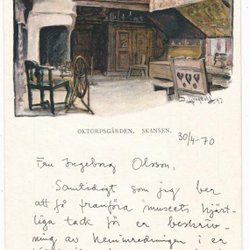 OKTORPSGÅRDEN. SKANSEN.
30/4-70
Fru Ingeborg Olsson,
Samtidigt som jag ber
att få framföra museets hjärt-
liga tack för er beskriv-
ning av heminredningen i er